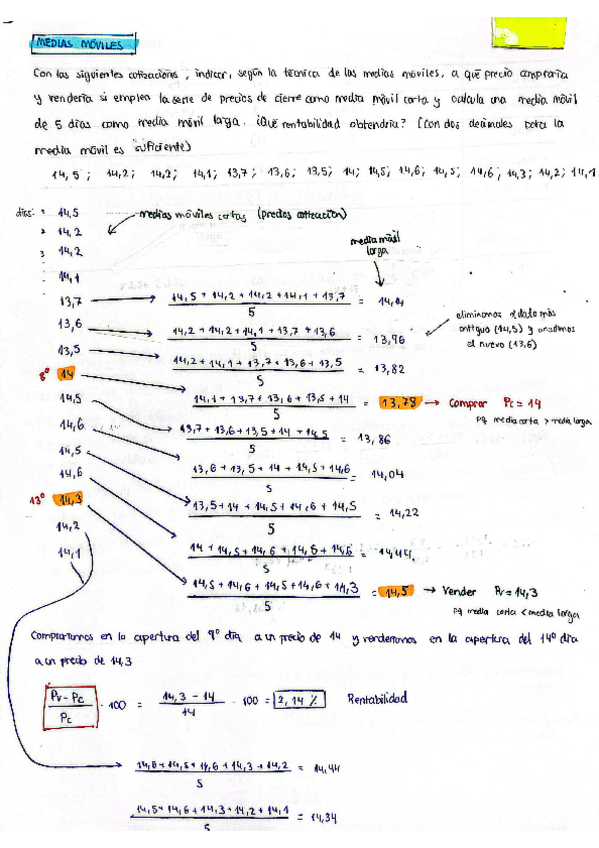 MEDIAS MÓVILES
Con las siguientes cotizaciones, indicar, según la técnica de las medias móviles, a qué precio compraría
y vendería si emplea la serie de precios de cierre como media móvil corta y calcula una media móvil
de 5 días como media móvil larga. ¿Qué rentabilidad obtendría? (Con dos decimales para la
media móvil es suficiente)
14,5; 14,2; 14,2; 14,1; 13,7; 13,6; 13,5; 14; 14,5; 14,6; 14,5; 14,6; 14,3; 14,2; 14,1
días: 1 14,5 medias móviles cortas (precios cotización)
2 14,2
3 14,2 media móvil
larga
14,1
13,7 14,5 + 14,2 + 14,2 + 14,1 + 13,7 / 5 = 14,14
13,6 14,2 + 14,2 + 14,1 + 13,7 + 13,6 / 5 = 13,96
eliminamos el dato más
antiguo (14,5) y añadimos
el nuevo (13,6)
13,5 14,2 + 14,1 + 13,7 + 13,6 + 13,5 / 5 = 13,82
8º 14 14,1 + 13,7 + 13,6 + 13,5 + 14 / 5 = 13,78 → Comprar Pc = 14
pq media corta > media larga
14,5 13,7 + 13,6 + 13,5 + 14 + 14,5 / 5 = 13,86
14,6 13,6 + 13,5 + 14 + 14,5 + 14,6 / 5 = 14,04
14,5 13,5 + 14 + 14,5 + 14,6 + 14,5 / 5 = 14,22
14,6 14 + 14,5 + 14,6 + 14,5 + 14,6 / 5 = 14,44
13º 14,3 14,5 + 14,6 + 14,5 + 14,6 + 14,3 / 5 = 14,5 → Vender Pv = 14,3
pq media corta < media larga
14,2
14,1
Compraríamos en la apertura del 9º día a un precio de 14 y venderíamos en la apertura del 14º día
a un precio de 14,3
Pv - Pc / Pc · 100 = 14,3 - 14 / 14 · 100 = 2,14 % Rentabilidad
14,6 + 14,5 + 14,6 + 14,3 + 14,2 / 5 = 14,44
14,5 + 14,6 + 14,3 + 14,2 + 14,1 / 5 = 14,34